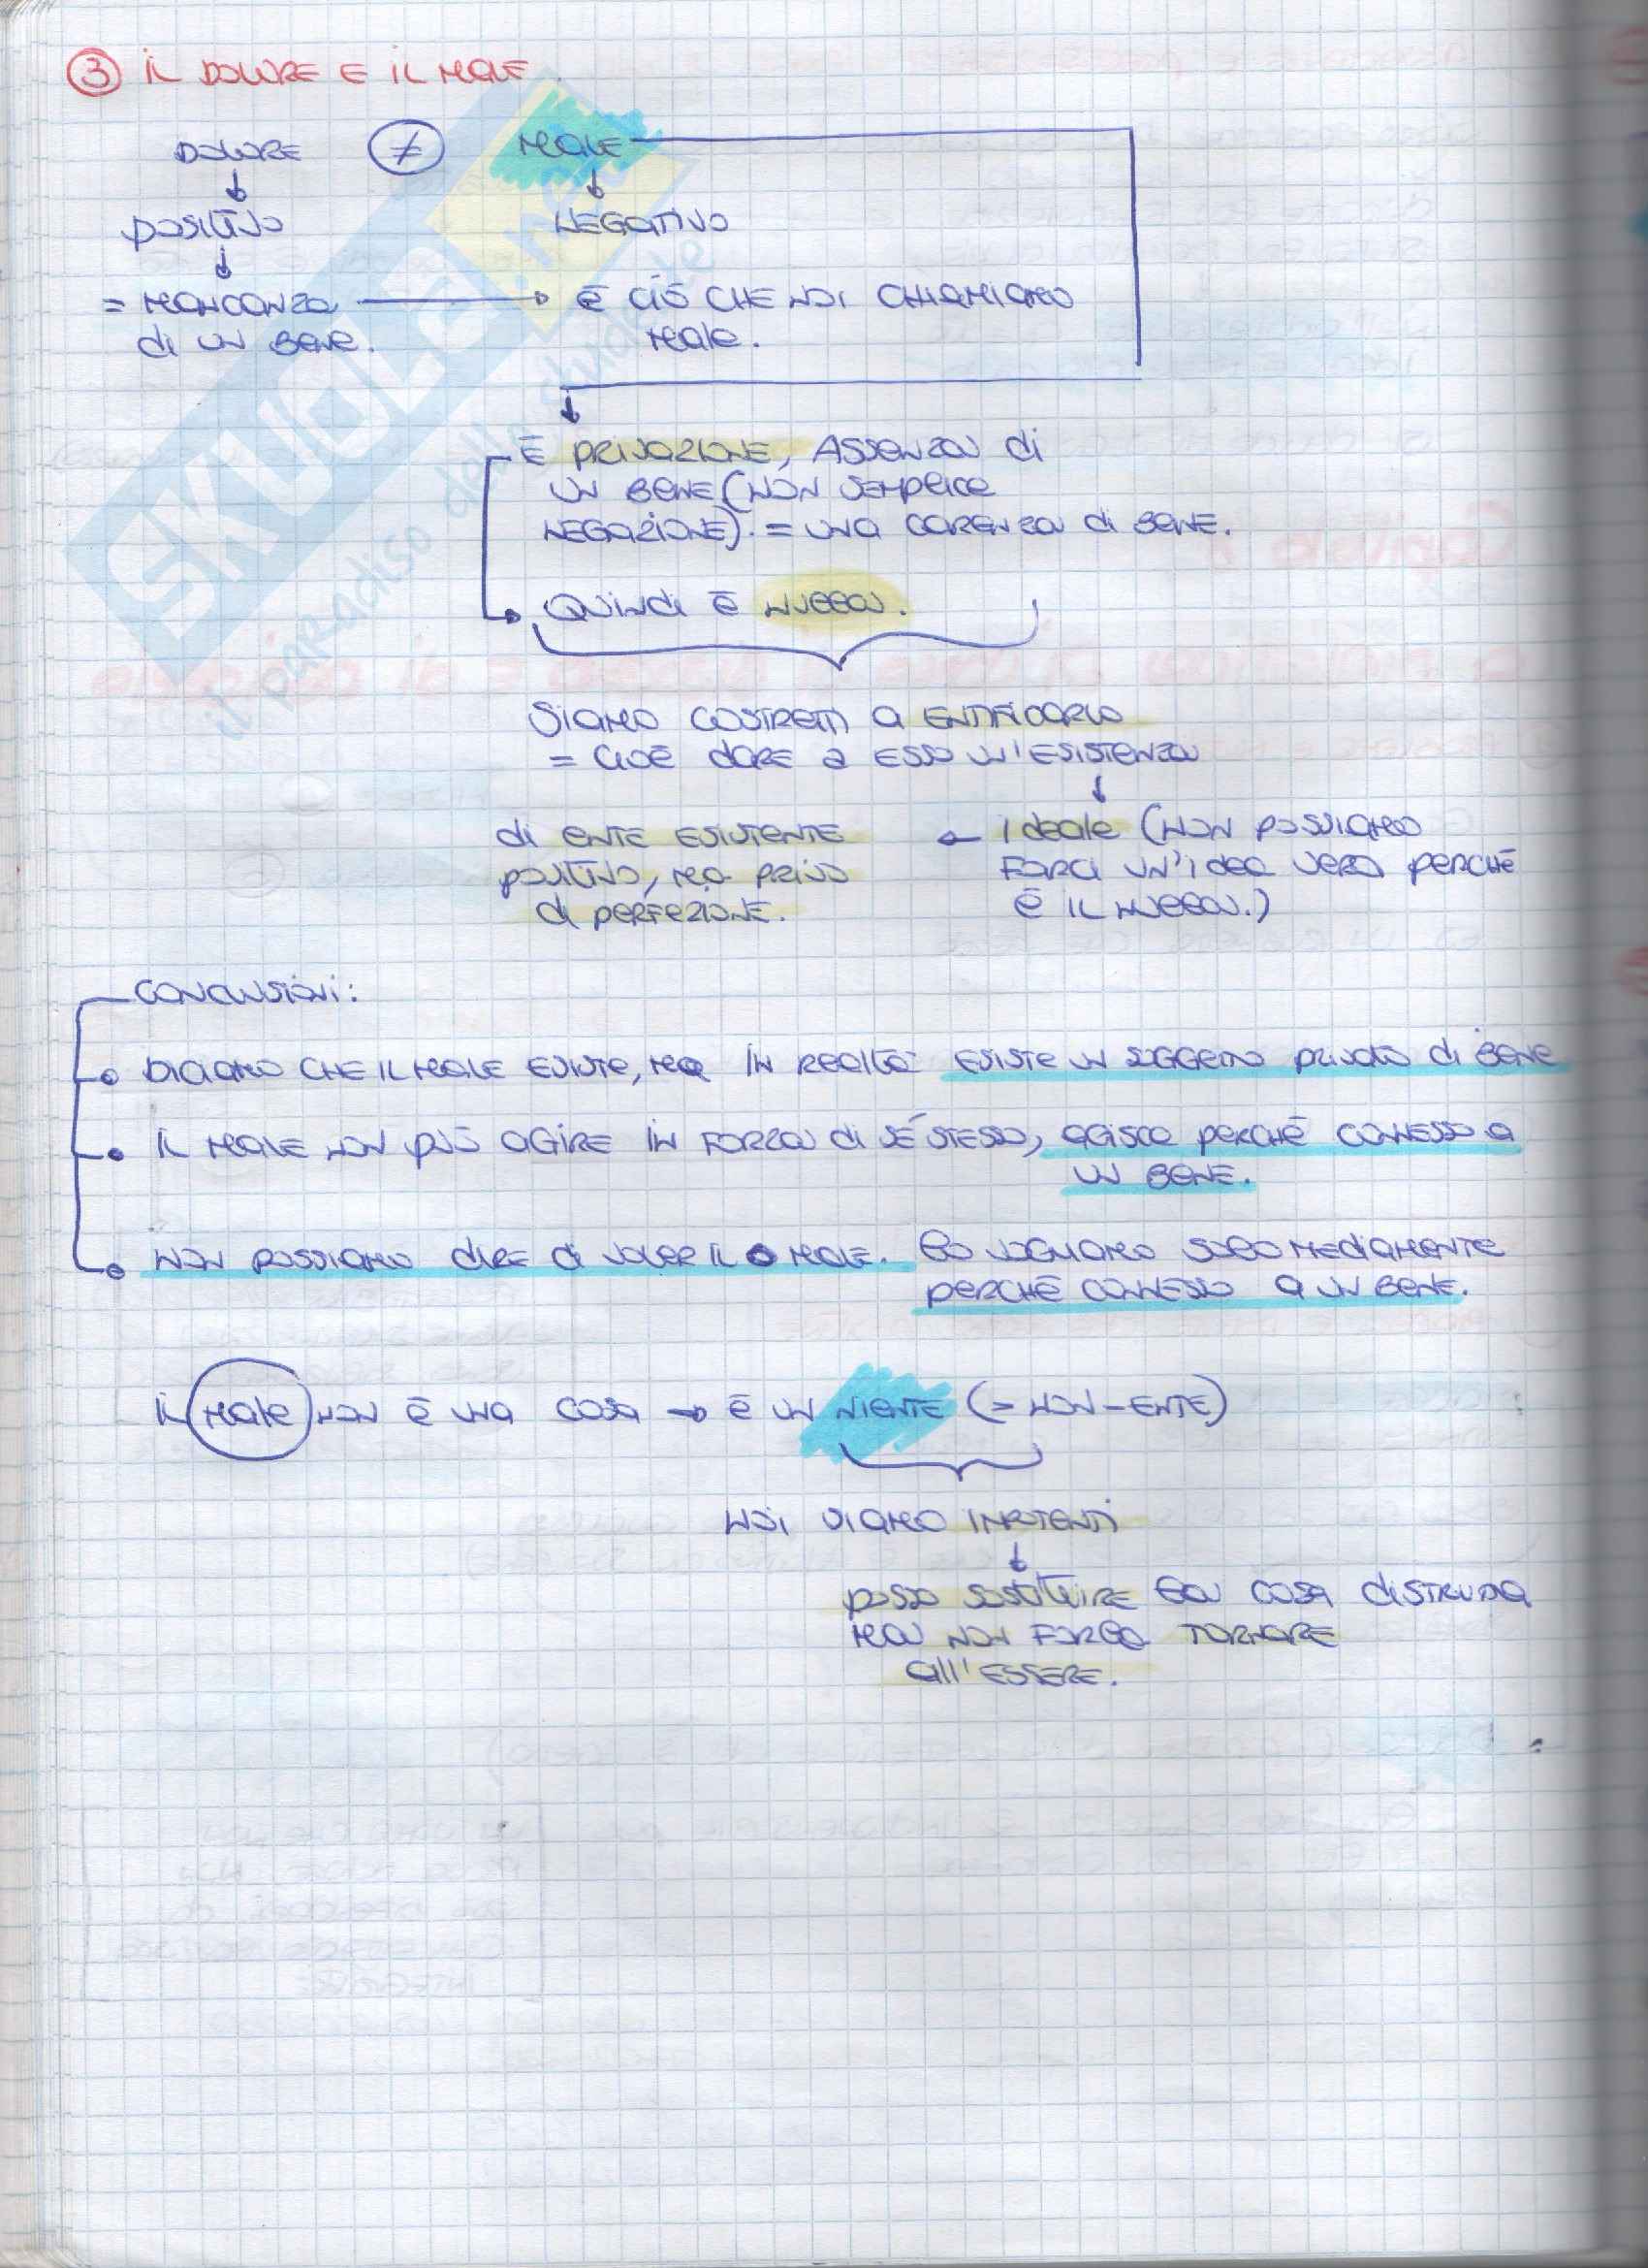 3 IL DOLORE E IL MALE
DOLORE ≠ MALE
↓ ↓
POSITIVO NEGATIVO
↓
= MANCANZA → È CIÒ CHE NOI CHIAMIAMO
di UN BENE. MALE.
↓
È PRIVAZIONE, ASSENZA di
UN BENE (NON SEMPLICE
NEGAZIONE). = UNA CARENZA di BENE.
→ QUINDI È NULLA.
SIAMO COSTRETTI A ENTIFICARLO
= CIOÈ DARE A ESSO UN'ESISTENZA
↓
di ENTE ESISTENTE ← IDEALE (NON POSSIAMO
POSITIVO, MA PRIVO FARCI UN'IDEA VERA PERCHÉ
di PERFEZIONE. È IL NULLA.)
CONCLUSIONI:
• DICIAMO CHE IL MALE ESISTE, MA IN REALTÀ ESISTE UN SOGGETTO PRIVATO di BENE
• IL MALE NON PUÒ AGIRE IN FORZA di SÉ STESSO, AGISCE PERCHÉ CONNESSO A
UN BENE.
• NON POSSIAMO DIRE di VOLER IL MALE. LO VOGLIAMO SOLO MEDIAMENTE
PERCHÉ CONNESSO A UN BENE.
IL MALE NON È UNA COSA → È UN NIENTE (= NON-ENTE)
NOI SIAMO IMPOTENTI
↓
POSSO SOSTITUIRE LA COSA DISTRUTTA
MA NON FARLA TORNARE
all'ESSERE.
SKUOLA.net
il paradiso dello studente